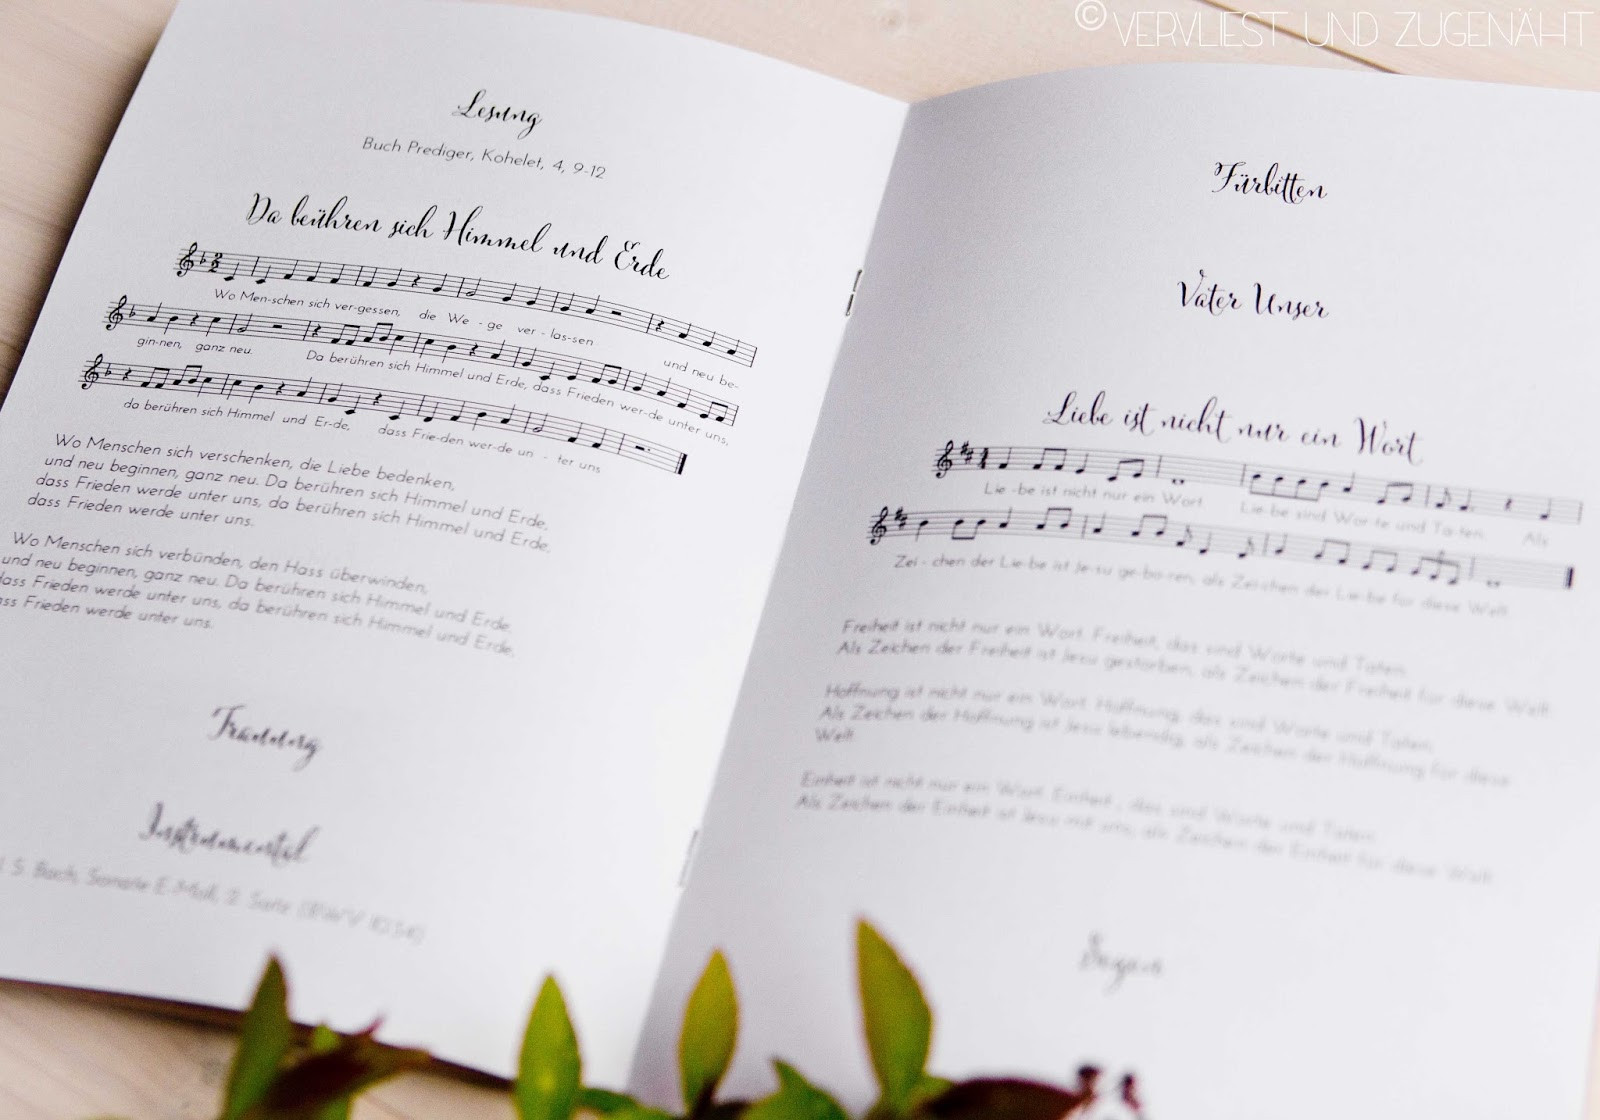 © VERVLIEST UND ZUGENÄHT
Lesung
Buch Prediger, Kohelet, 4, 9-12
Da beühren sich Himmel und Erde
Wo Men-schen sich ver-gessen, die We - ge ver - las-sen und neu be-
gin-nen, ganz neu. Da berühren sich Himmel und Erde, dass Frieden wer-de unter uns,
da berühren sich Himmel und Er-de, dass Frie-den wer-de un - ter uns
Wo Menschen sich verschenken, die Liebe bedenken,
und neu beginnen, ganz neu. Da berühren sich Himmel und Erde,
dass Frieden werde unter uns, da berühren sich Himmel und Erde,
dass Frieden werde unter uns.
Wo Menschen sich verbünden, den Hass überwinden,
und neu beginnen, ganz neu. Da berühren sich Himmel und Erde,
dass Frieden werde unter uns, da berühren sich Himmel und Erde,
ss Frieden werde unter uns.
Trauung
Instrumental
S. Bach, Sonate E-Moll, 2. Satz (BWV 1034)
Fürbitten
Vater Unser
Liebe ist nicht nur ein Wort
Lie-be ist nicht nur ein Wort Lie-be sind Wor-te und Ta-ten. Als
Zei-chen der Lie-be ist Je-su ge-bo-ren, als Zeichen der Lie-be für diese Welt
Freiheit ist nicht nur ein Wort. Freiheit, das sind Worte und Taten.
Als Zeichen der Freiheit ist Jesu gestorben, als Zeichen der Freiheit für diese Welt.
Hoffnung ist nicht nur ein Wort. Hoffnung, das sind Worte und Taten.
Als Zeichen der Hoffnung ist Jesu lebendig, als Zeichen der Hoffnung für diese
Welt.
Einheit ist nicht nur ein Wort. Einheit , das sind Worte und Taten.
Als Zeichen der Einheit ist Jesu mit uns, als Zeichen der Einheit für diese Welt.
Segen